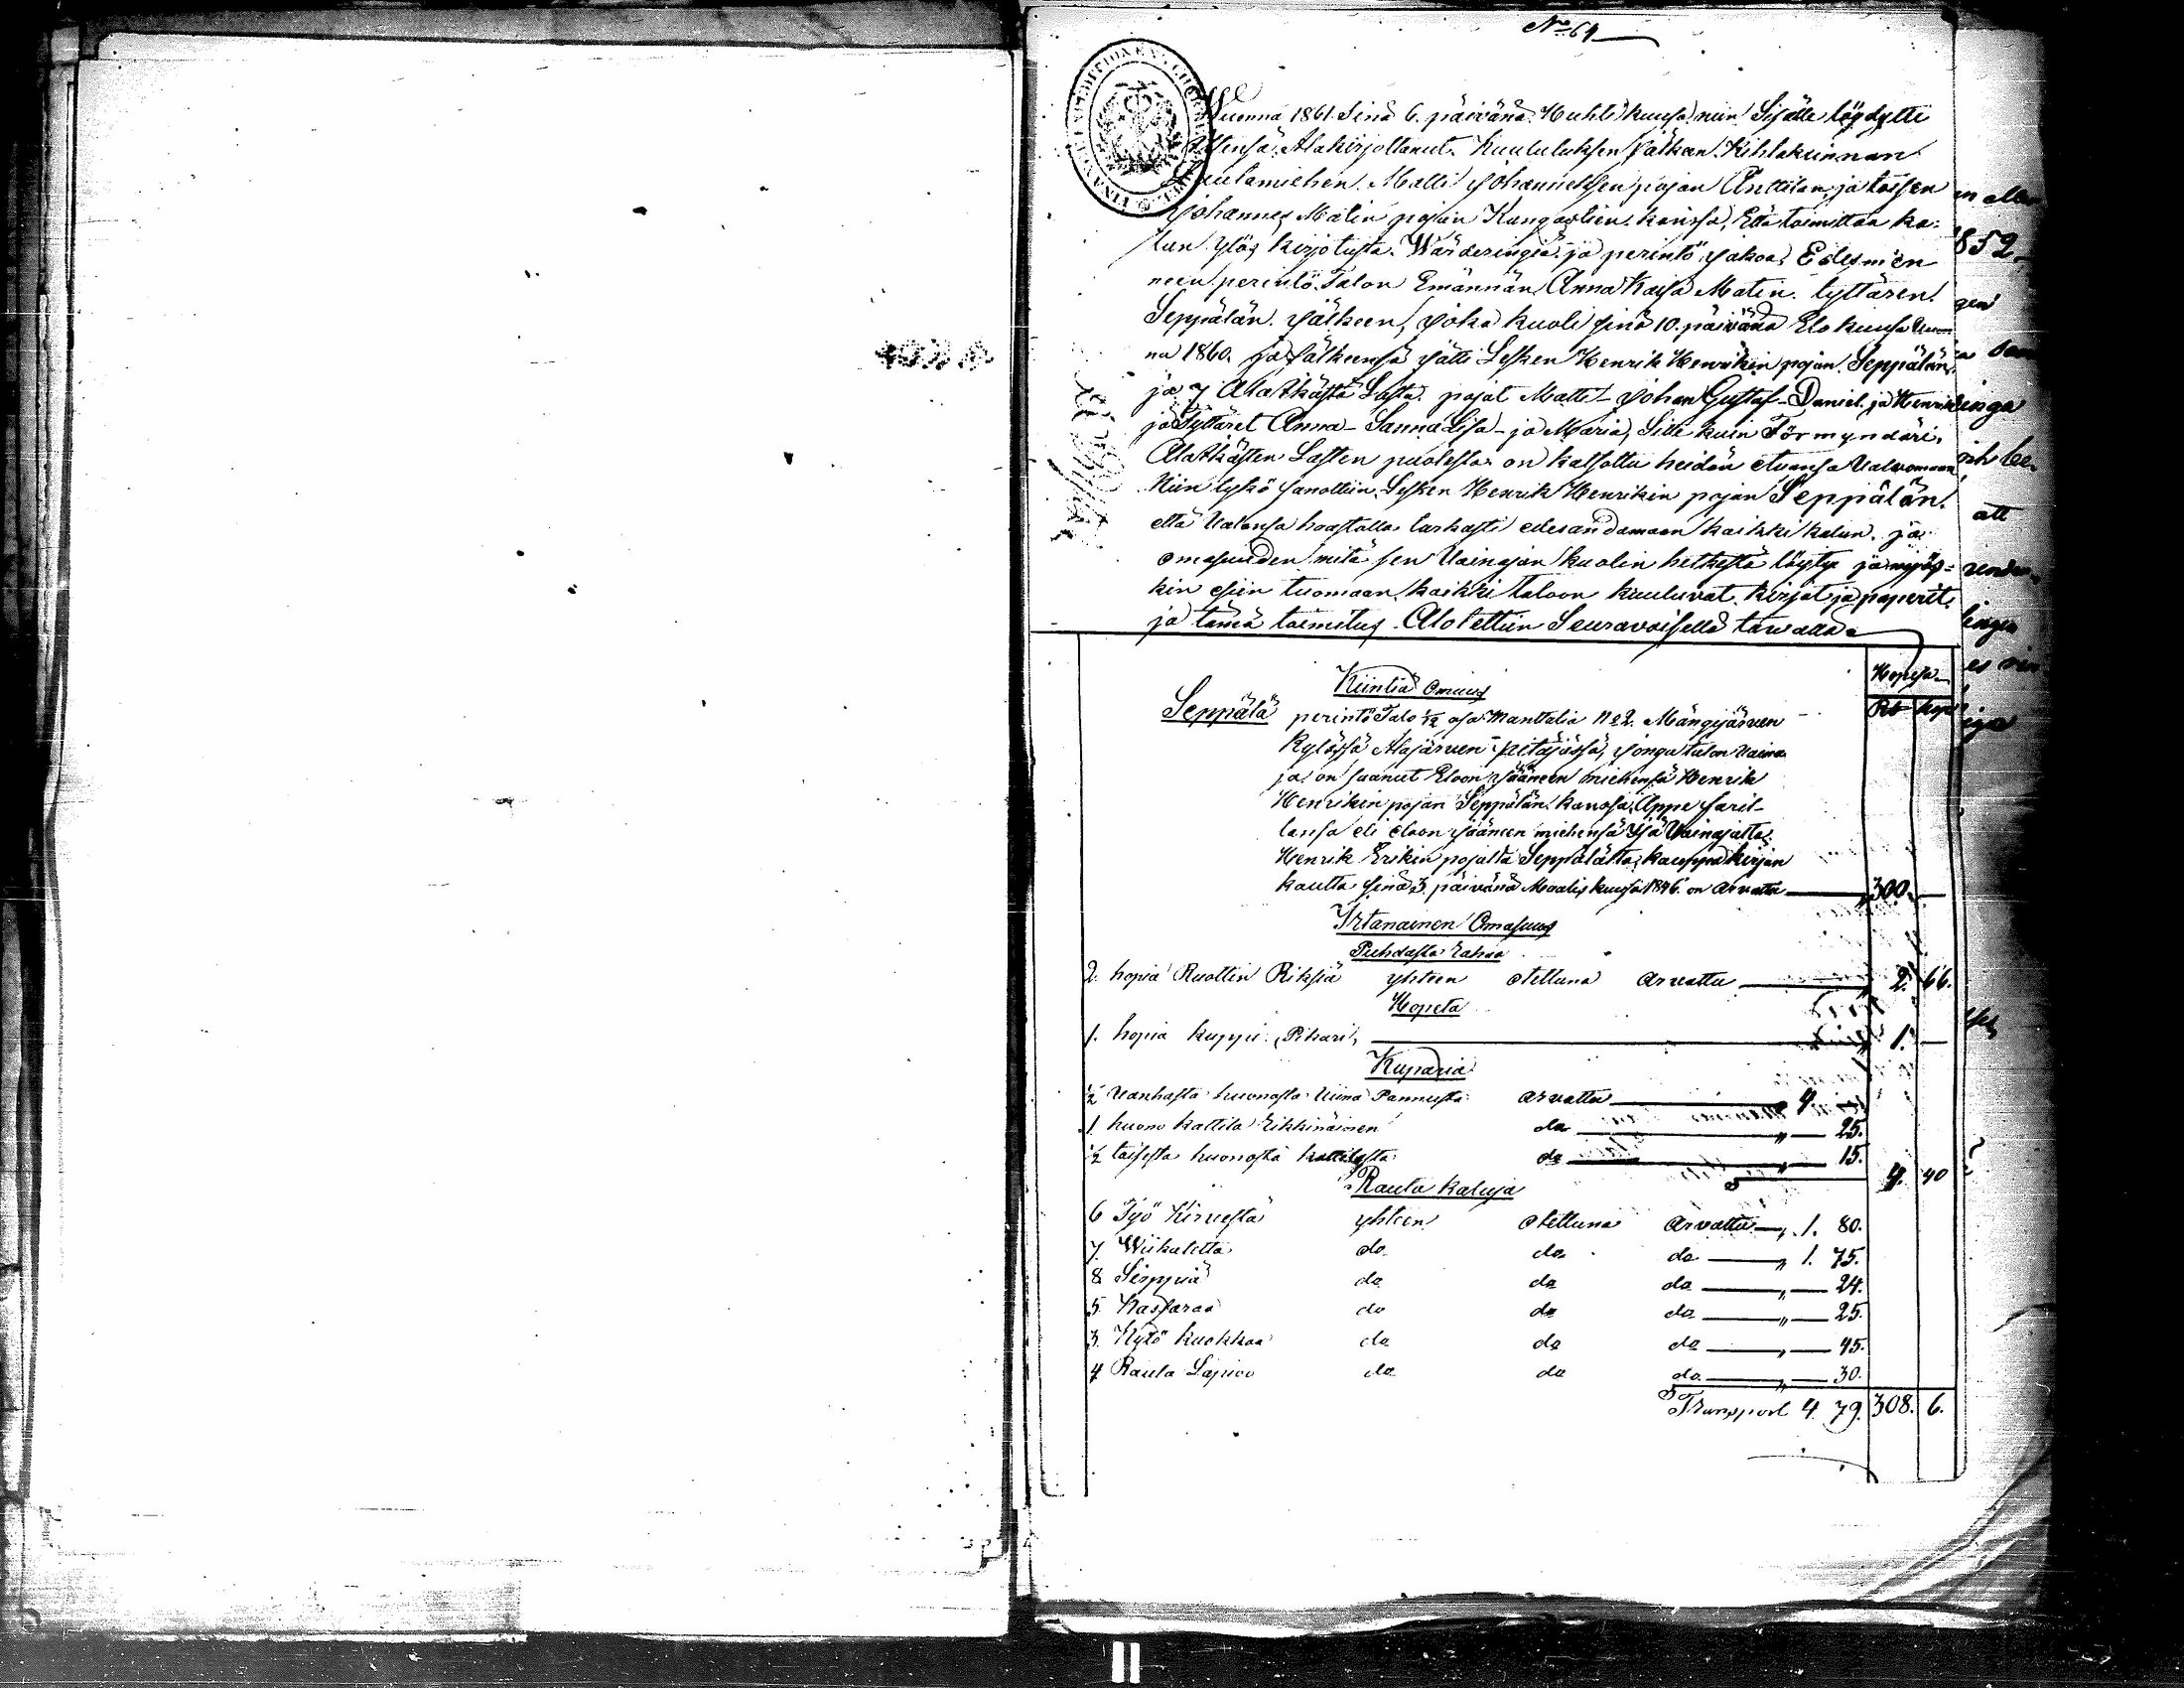 No 64
Wuonna 1861. Sinä 6. päivänä Huhti kuusa niin Sisälle löydytti
itsensä Alakirjottanut. Kuululuksen jälkeen Kihlakunnan
Lautamiehen Matti Johanneksen pojan Anttilan ja toisen
Johannes Matin pojan Kangastien kanssa, Että toimittaa ka-
lun ylös kirjotusta. Wärderingiä ja perintö jakoa, Edesmen
neen perintö Talon Emännän Anna Kaisa Matin tyttären
Seppälän jälkeen, joka kuoli sinä 10. päivänä Elo kuusa Vuon
na 1860. ja jälkeensä jätti Lesken Henrik Henrikin pojan Seppälän
ja 7 Ala Ikästä Lasta. pojat Matti - Johan Gustaf - Daniel ja Henrik
ja Tyttäret Anna - Sanna Lisa - ja Maria, Sille kuin Förmyndäri,
Ala Ikästen Lasten puolesta on katsottu heidän etuansa Valvomaan
Niin tykö sanottiin Lesken Henrik Henrikin pojan Seppälän
että Valansa haastolla tarkasti edesandamaan kaikki kalun ja
omasuuden mitä sen Vainajan kuolin hetkestä löyty ja myös-
kin esiin tuomaan kaikki taloon kuuluvat kirjat ja paperit
ja tämä toimitus Alotettiin Seuravaisella tawalla
Hopeja
Rb kop
Kiintiä Omaus
Seppälä perintö Talo 1/12 osa Manttalia No 2. Mängijärven
Kylässä Alajärven pitäjässä, jonga talon vaina
ja on saanut Eloon jääneen miehensä Henrik
Henrikin pojan Seppälän kanssa Appe
lansa eli eloon jääneen miehensä Isä Vainajalta
Henrik Erikin pojalta Seppälältä kauppa kirjan
kautta sinä 3. päivänä Maalis kuusa 1846 on Arvattu 300. —
Irtanainen Omasuus
Puhdasta Rahaa
2. hopia Ruottin Riksiä yhteen otettuna Arvattu 2. 66.
Hopeta
1. hopia kuppi (Pikari) 1. —
Kuparia
1/2 Vanhasta huonosta Viina Pannusta arvattu 4. —
1 huono kattila Rikkinäinen do " — 25.
1/2 toisesta huonosta kattilasta do " — 15. 4. 40
Rauta kaluja
6 Työ Kirvestä yhteen otettuna Arvattu " 1. 80.
7. Wiikatetta do do do " 1. 75.
8 Sirppiä do do do " — 24.
5. Kassaraa do do do " — 25.
3. Kytö kuokkaa do do do " — 45.
4 Rauta Lapioo do do do " — 30.
Transport 4 79. 308. 6.
1852.
att